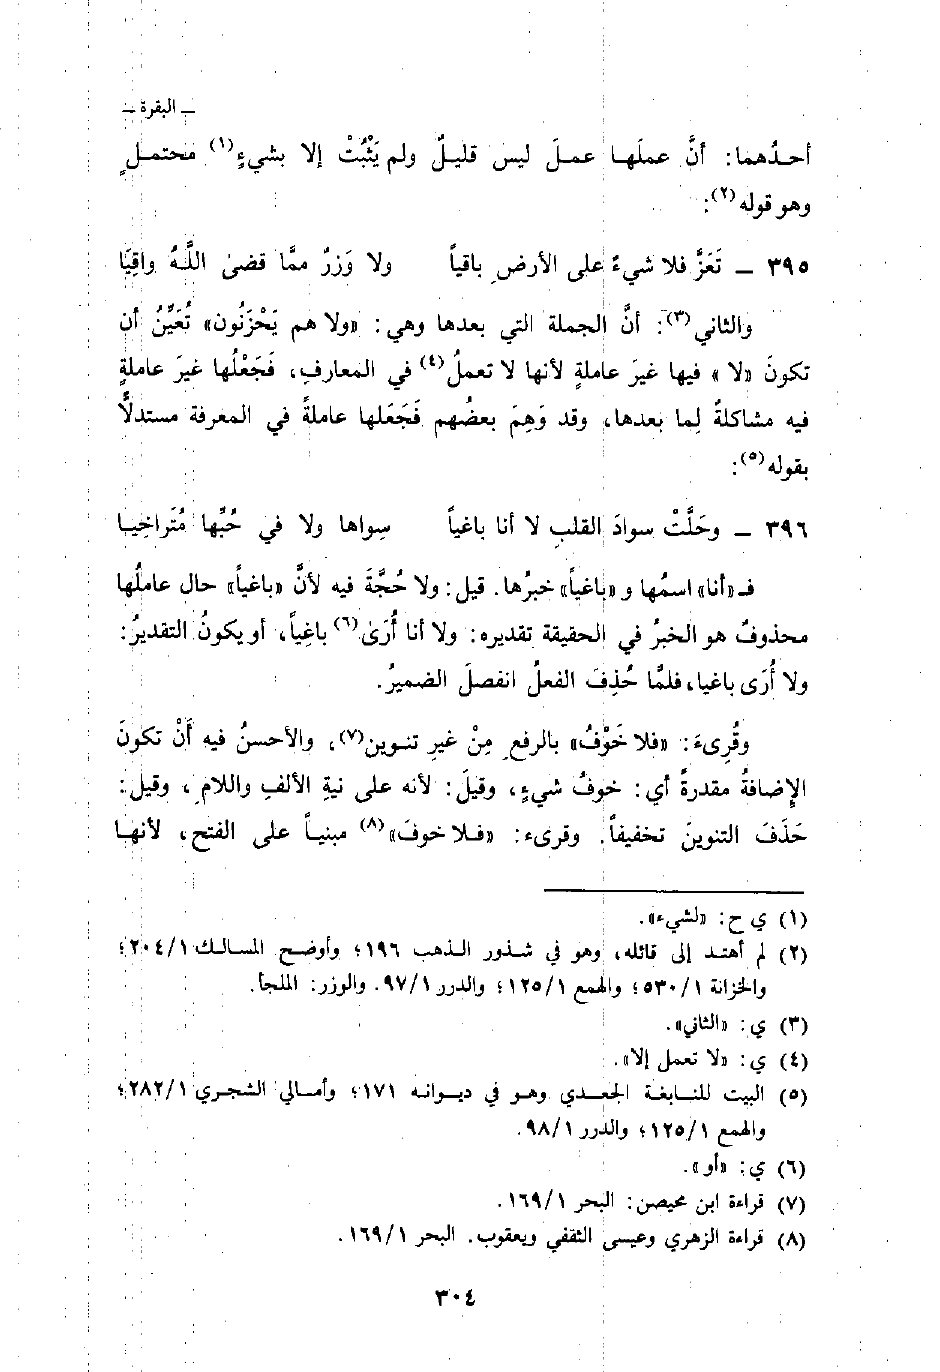 ـ البقرة ـ
أحدُهما: أنَّ عملَها عملَ ليس قليلٌ ولم يَثْبُتْ إلا بشيءٍ(١) محتملٍ
وهو قوله(٢):
٣٩٥ ـ تَعَزَّ فلا شيءٌ على الأرضِ باقياً ولا وَزَرٌ ممَّا قضىٰ اللَّهُ واقِيَا
والثاني(٣): أنَّ الجملة التي بعدها وهي: «ولا هم يَحْزَنُون» تُعَيِّنُ أن
تكونَ «لا» فيها غيرَ عاملةٍ لأنها لا تعملُ(٤) في المعارفِ، فَجَعْلُها غيرَ عاملةٍ
فيه مشاكلةً لِما بعدها، وقد وَهِمَ بعضُهم فَجَعَلها عاملةً في المعرفة مستدلاًّ
بقوله(٥):
٣٩٦ ـ وحَلَّتْ سوادَ القلبِ لا أنا باغياً سِواها ولا في حُبِّها مُتَراخِيا
فـ «أنا» اسمُها و «باغياً» خبرُها. قيل: ولا حُجَّةَ فيه لأنَّ «باغياً» حال عاملُها
محذوفٌ هو الخبرُ في الحقيقة تقديره: ولا أنا أُرَىٰ(٦) باغِياً، أو يكونُ التقديرُ:
ولا أُرَى باغيا، فلمَّا حُذِفَ الفعلُ انفصلَ الضميرُ.
وقُرِىءَ: «فلا خَوْفُ» بالرفعِ مِنْ غيرِ تنوين(٧)، والأحسنُ فيه أَنْ تكونَ
الإِضافةُ مقدرةً أي: خوفُ شيءٍ، وقيلَ: لأنه على نيةِ الألفِ واللامِ، وقيل:
حَذَفَ التنوينَ تخفيفاً. وقرىء: «فلا خوفَ»(٨) مبنياً على الفتح، لأنها
(١) ي ح: «لشيء».
(٢) لم أهتد إلى قائله، وهو في شذور الذهب ١٩٦؛ وأوضح المسالك ٢٠٤/١؛
والخزانة ٥٣٠/١؛ والهمع ١٢٥/١؛ والدرر ٩٧/١. والوزر: الملجأ.
(٣) ي: «الثاني».
(٤) ي: «لا تعمل إلا».
(٥) البيت للنابغة الجعدي وهو في ديوانه ١٧١؛ وأمالي الشجري ٢٨٢/١؛
والهمع ١٢٥/١؛ والدرر ٩٨/١.
(٦) ي: «أو».
(٧) قراءة ابن محيصن: البحر ١٦٩/١.
(٨) قراءة الزهري وعيسى الثقفي ويعقوب. البحر ١٦٩/١.
٣٠٤